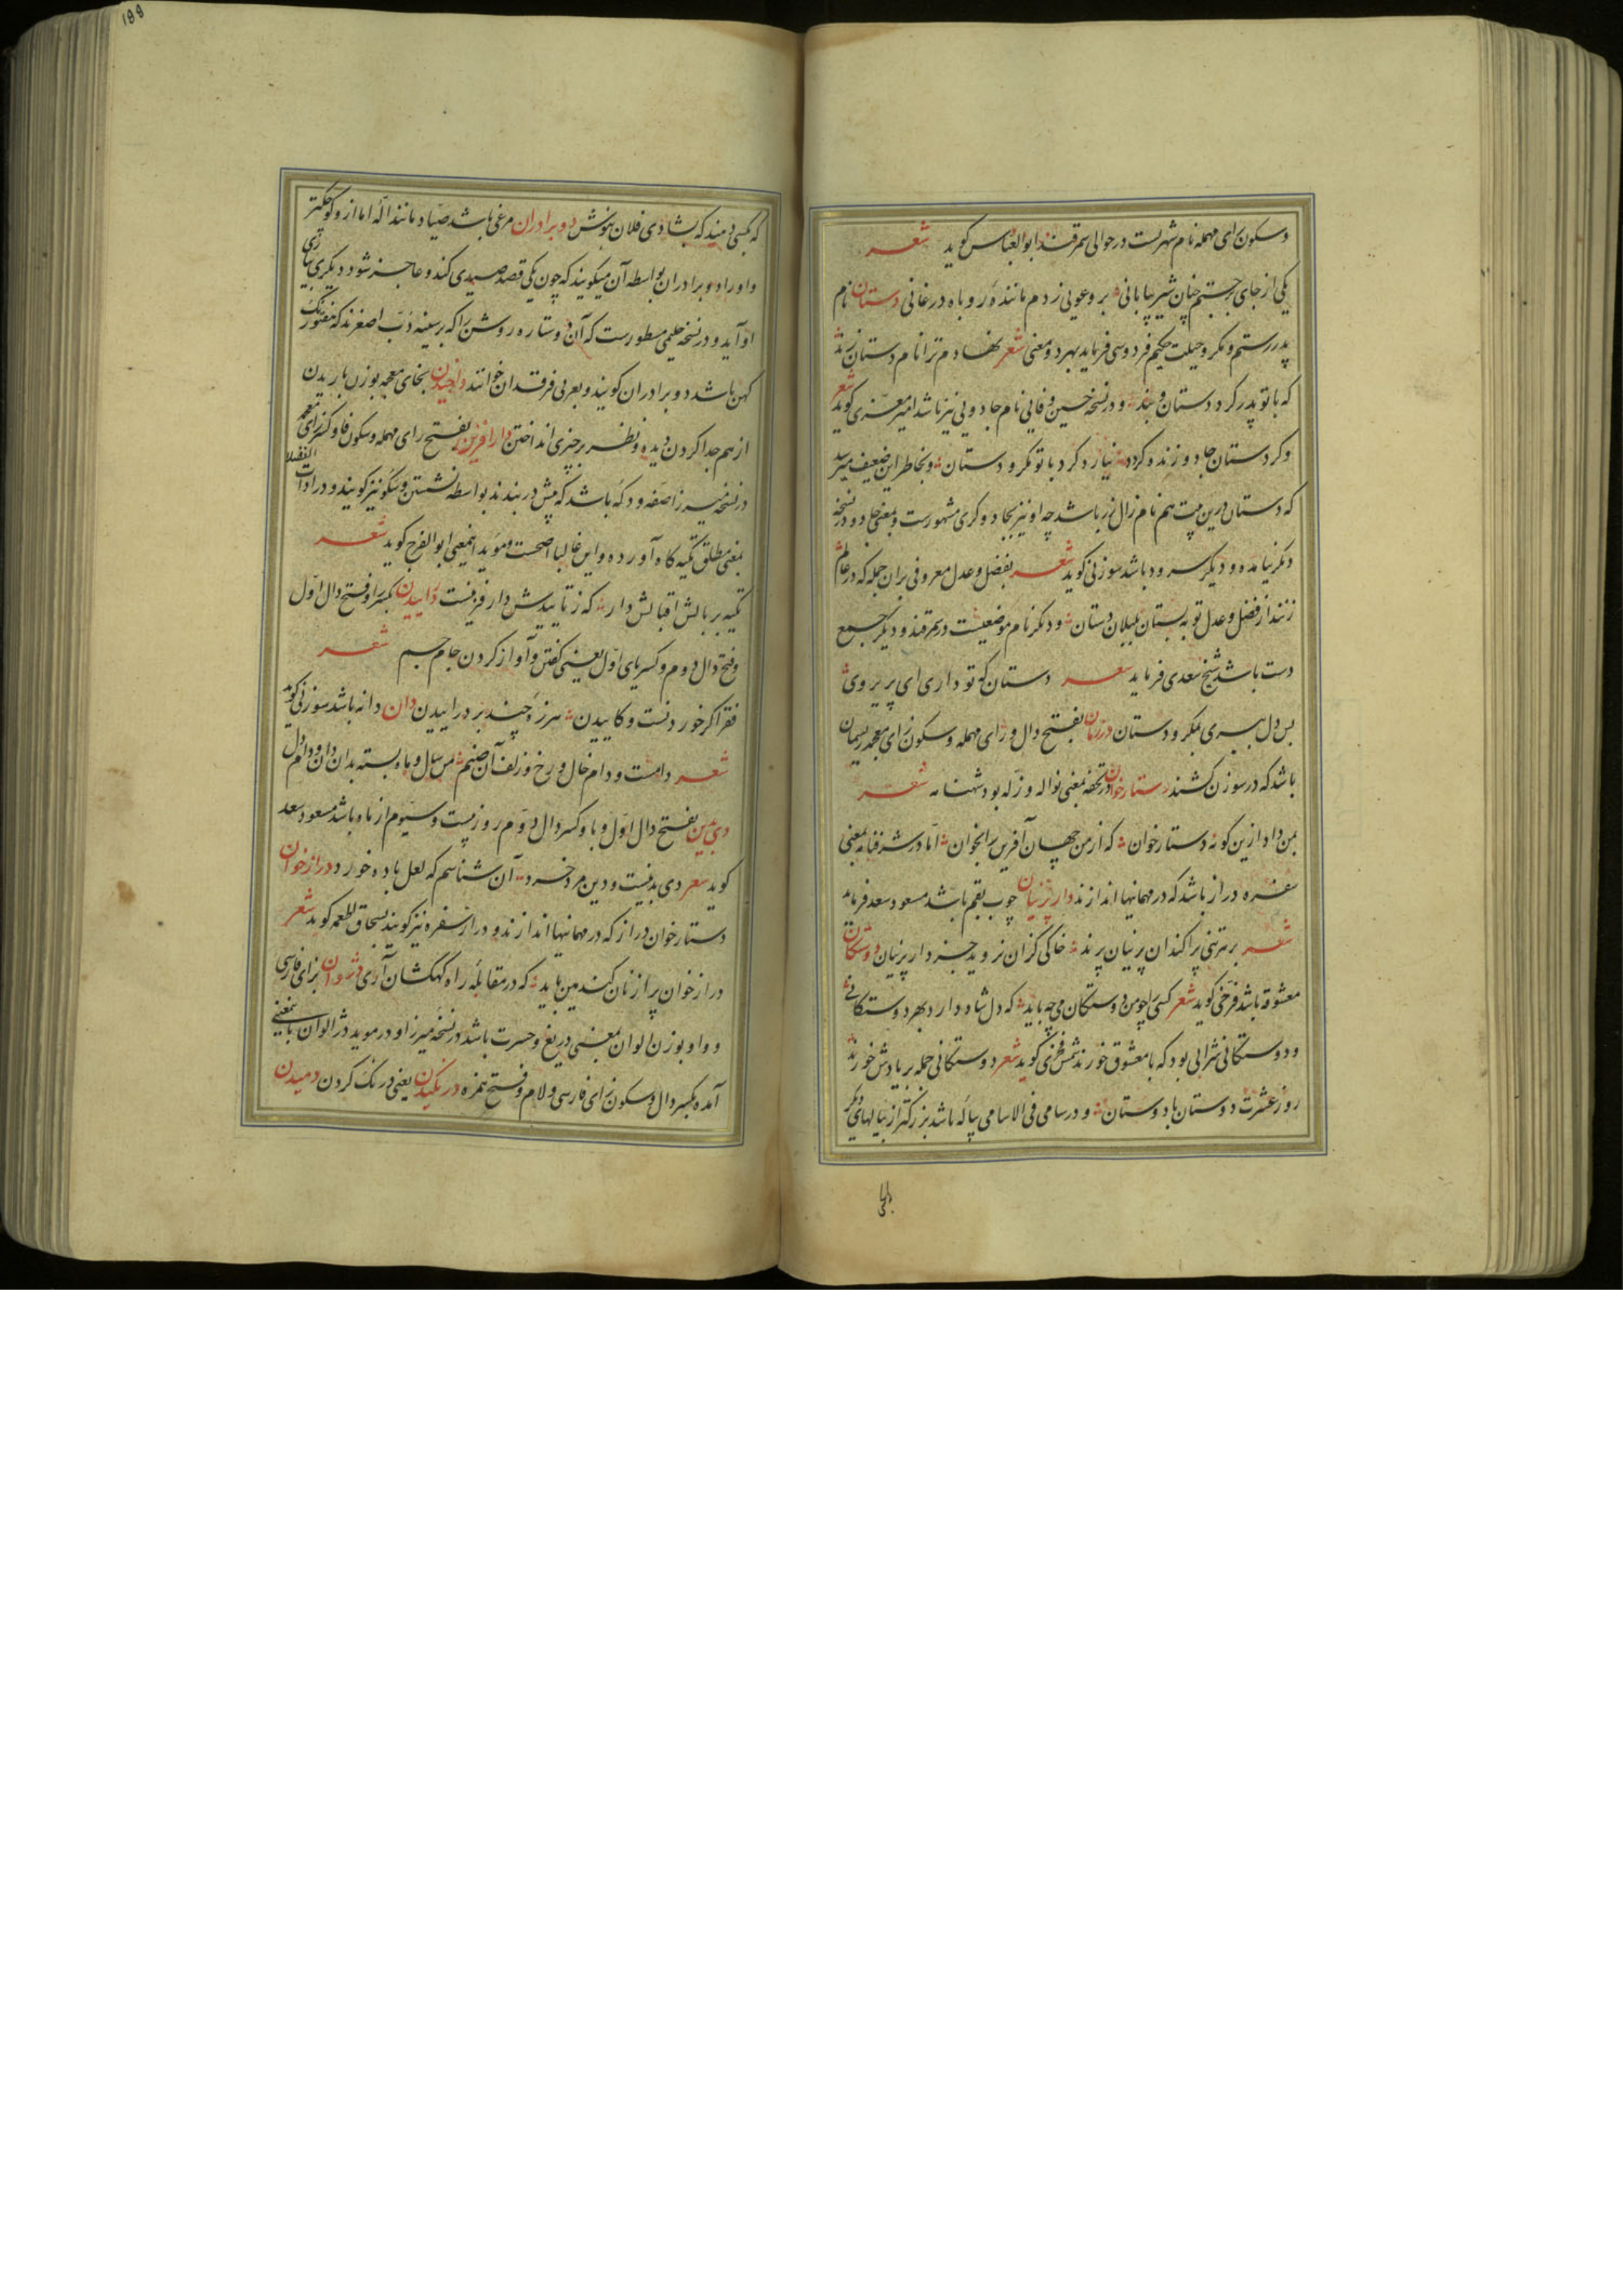 وسکون رای مهمله نام شهریست در حوالی سمرقند ابوالعباس کوید شعر
یکی از جای برجستم چنان شیر بیابانی برو غویی زدم مانندهٔ روباه درغانی دستان نام
پدر رستم و مکر و حیلت حکیم فردوسی فرماید بهر دو معنی شعر نهادم ترا نام دستان زند
که با تو پدر کرد دستان و بند و در نسخهٔ حسین وفایی نام جادویی نیز باشد امیر معزی کوید شعر
و کر دستان جادو زنده کردد نیارد کرد با تو مکر و دستان و بخاطر این ضعیف میرسد
که دستان درین بیت هم نام زال زر باشد چه او نیز بجادوکری مشهورست و بمعنی جادو در نسخهٔ
دیکر نیامده و دیکر سرود باشد سوزنی کوید شعر بفضل و عدل معروفی بران جمله که در عالم
زنند از فضل و عدل تو به بستان بلبلان دستان و دیکر نام موضعیست در سمرقند و دیکر جمع
دست باشد شیخ سعدی فرماید شعر دستان که تو داری ای پریروی
بس دل ببری بمکر و دستان درزمان بفتح دال و رای مهمله و سکون زای معجمه ریسمان
باشد که در سوزن کشند دستارخوان در تحفه بمعنی نواله و زله بود شهنامه شعر
بمن داد ازین کونه دستارخوان که از من جهان آفرین را بخوان اما در شرفنامه بمعنی
سفرهٔ دراز باشد که در مهمانیها اندازند دارپرنیان چوب بقم باشد مسعود سعد فرماید
شعر برترنجی پراکندان پرنیان پرند خاکی کزان نروید جز دارپرنیان دوستکان
معشوقه باشد فرخی کوید شعر کسی را چو من دوستکان می چه باید که دل شاد دارد بهر دوستکانی
و دوستکانی شرابی بود که با معشوق خورند شمس فخری کوید شعر دوستکانی جمله بر یادش خورند
روز عشرت دوستان با دوستان و در سامی فی الاسامی پیاله باشد بزرکتر از پیالهای دیکر
که بکسی دهند که بشادی فلان بنوش دوبرادران مرغی باشد صیاد مانند اله اما ازو کوچکتر
و او را دو برادران بواسطه آن میکویند که چون یکی قصد صیدی کند و عاجز شود دیکری بیاری
او آید و در نسخه حلیمی مسطورست که آن دو ستاره روشن را که بر سینه دب اصغرند که هفتورنک
کهن باشد دو برادران کویند و بعربی فرقدان خوانند داخیدن بخای معجمه بوزن باریدن
از هم جدا کردن دیده و نظر بر چیزی انداختن دارافزین بفتح رای مهمله و سکون فا و کسر زای معجمه
در نسخه میرزا صفه و دکه باشد که پیش در بندند بواسطه نشستن و سکو نیز کویند و در ادات الفضلا
بمعنی مطلق تکیه کاه آورده و این غالبا اصحست و موید اینمعنی ابوالفرج کوید شعر
تکیه بر بالش اقبالش دار که ز تاییدش دارفزینست دراییدن بکسر را و فتح دال اول
و فتح دال دوم و کسر یای اول یعنی کفتن و آواز کردن جام جم شعر
فقر اکر خوردنست و کاییدن هرزهٔ چند بر دراییدن دان دانه باشد سوزنی کوید
شعر دامست و دام خال و رخ و زلف آن صنم من سال و ماه بسته بدان دان و دام دل
دی بدین بفتح دال اول و با و کسر دال دوم روز بیست و سیوم از ماه باشد مسعود سعد
کوید شعر دی بدینست و دین مرد خرد آن شناسم که لعل باده خورد درازخوان
دستارخوان دراز که در مهمانیها اندازند و دراز سفره نیز کویند بسحاق اطعمه کوید شعر
درازخوان پر از نان کندمین باید که در مقابلهٔ راه کهکشان آری دژوان بزای فارسی
و واو بوزن الوان بمعنی دریغ و حسرت باشد در نسخه میرزا و در موید دژالوان باینمعنی
آمده بکسر دال و سکون زای فارسی و لام و فتح همزه درنکیدن یعنی درنک کردن دمیدن